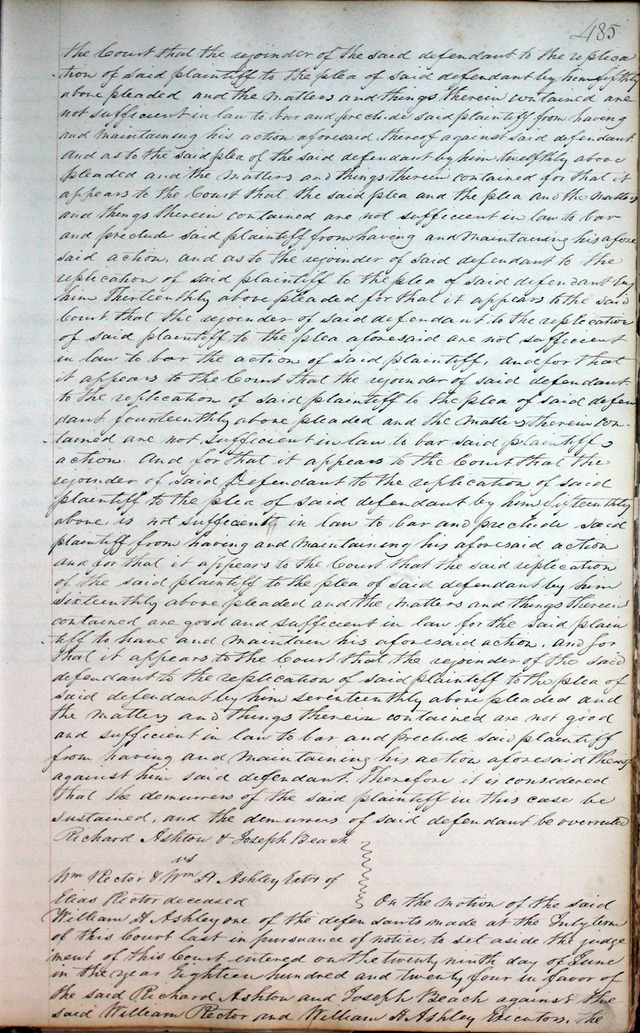 485
the Court that the rejoinder of the said defendant to the replica
tion of said plaintiff to the plea of said defendant by him fifthly
above pleaded and the matters and things therein contained are
not sufficient in law to bar and preclude said plaintiff from having
and maintaining his action aforesaid thereof against said defendant.
And as to the said plea of the said defendant by him twelfthly above
pleaded and the matters and things therein contained for that it
appears to the Court that the said plea and the plea and the matters
and things therein contained are not sufficient in law to bar
and preclude said plaintiff from having and maintaining his afore
said action, and as to the rejoinder of said defendant to the
replication of said plaintiff to the plea of said defendant by
him Thirteenthly above pleaded for that it appears to the said
Court that the rejoinder of said defendant to the replication
of said plaintiff to the plea aforesaid are not sufficient
in law to bar the action of said plaintiff, and for that
it appears to the Court that the rejoinder of said defendant
to the replication of said plaintiff to the plea of said defen
dant fourteenthly above pleaded and the matters therein con-
tained are not sufficient in law to bar said plaintiffs
action. And for that it appears to the Court that the
rejoinder of said defendant to the replication of said
plaintiff to the plea of said defendant by him fifteenthly
above is not sufficient in law to bar and preclude said
plaintiff from having and maintaining his aforesaid action
and for that it appears to the Court that the said replication
of the said plaintiff to the plea of said defendant by him
sixteenthly above pleaded and the matters and things therein
contained are good and sufficient in law for the said plain
tiff to have and maintain his aforesaid action, and for
that it appears to the Court that the rejoinder of the said
defendant to the replication of said plaintiff to the plea of
said defendant by him seventeenthly above pleaded and
the matters and things therein contained are not good
and sufficient in law to bar and preclude said plaintiff
from having and maintaining his action aforesaid thereof
against him said defendant. Therefore it is considered
that the demurrers of the said plaintiff in this case be
sustained, and the demurrers of said defendant be overruled
Richard Ashton & Joseph Beach
vs
Wm Rector & Wm H Ashley Exors of
Elias Rector deceased On the motion of the said
William H Ashley one of the defendants made at the July term
of this Court last in pursuance of notice, to set aside the judge
ment of this Court entered on the twenty ninth day of June
in the year Eighteen hundred and twenty four in favor of
the said Richard Ashton and Joseph Beach against the
said William Rector and William H Ashley Executors, the